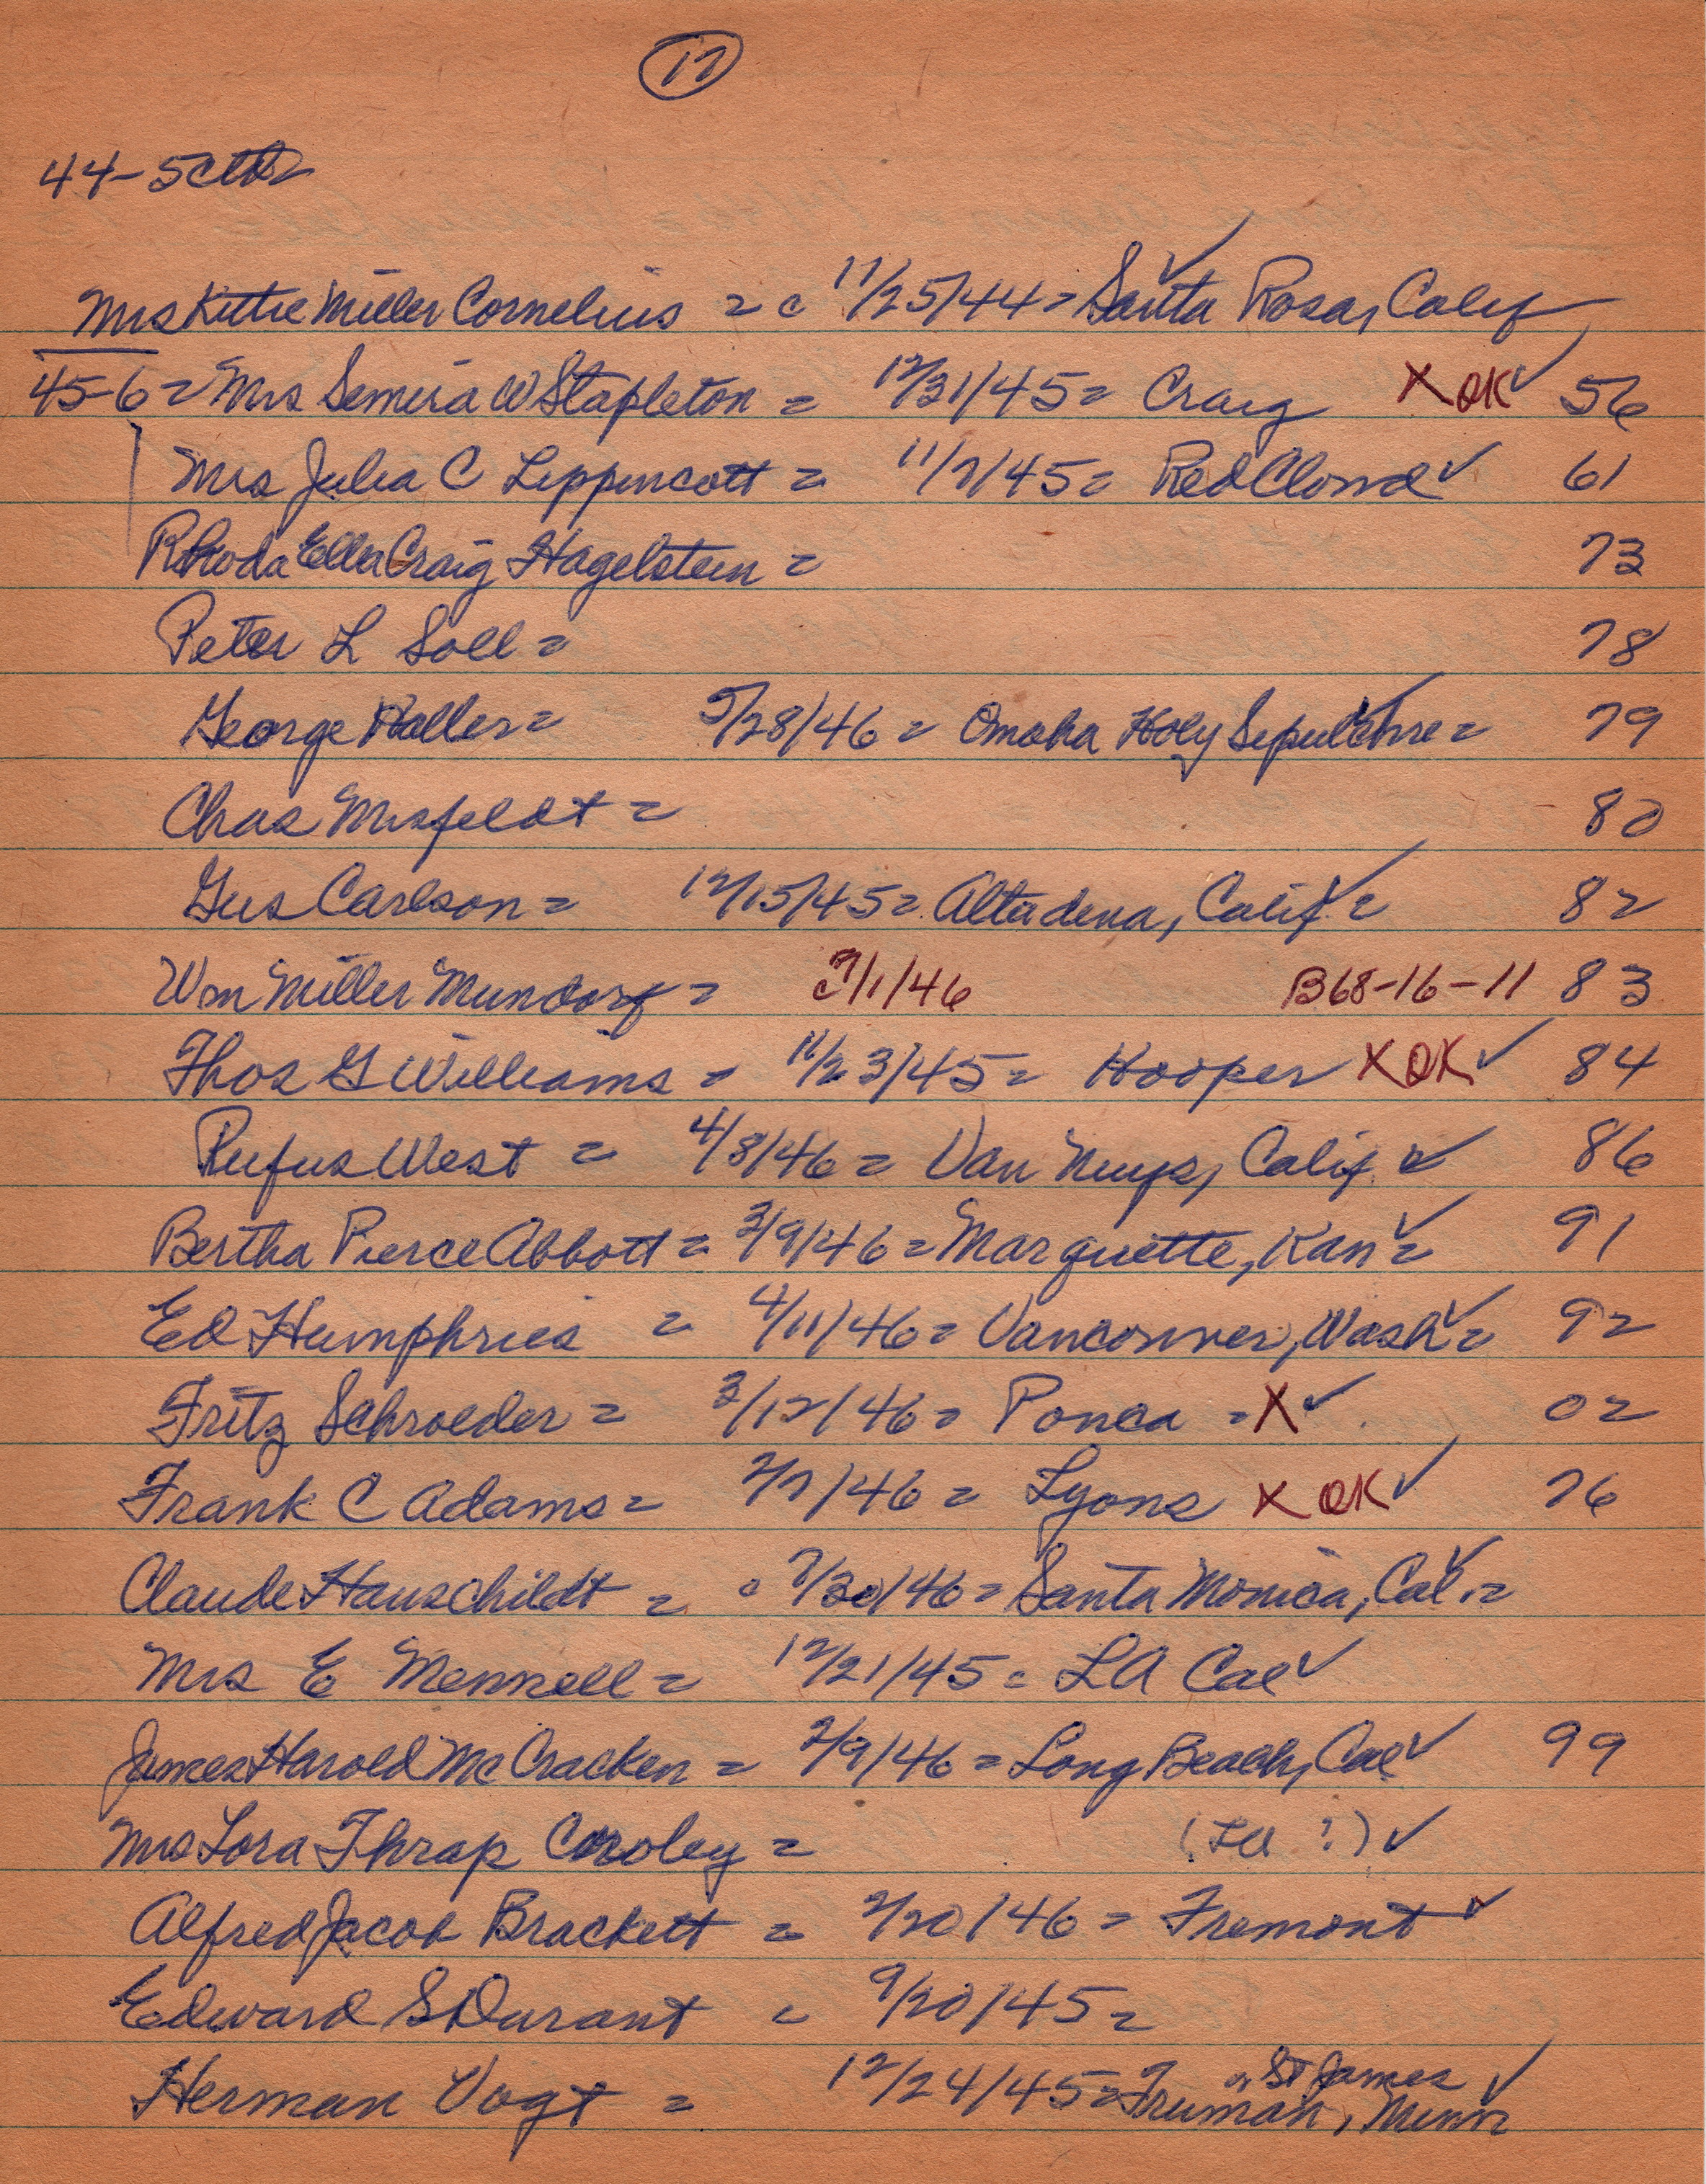 17
44-5
Mrs Kittie Miller Cornelius = c 11/25/44 = Santa Rosa, Calif
45-6 = Mrs Semira W Stapleton = 12/31/45 = Craig X OK ✓ 56
Mrs Julia C Lippincott = 11/7/45 = Red Cloud ✓ 61
Rhoda Ella Craig Hagelstein = 73
Peter L Soll = 78
George Haller = 5/28/46 = Omaha Holy Sepulchre = 79
Chas Misfeldt = 80
Gus Carlson = 12/15/45 = Altadena, Calif ✓ = 82
Wm Miller Mundorf = c 7/1/46 B68-16-11 83
Thos G Williams = 11/23/45 = Hooper X OK ✓ 84
Rufus West = 4/8/46 = Van Nuys, Calif. ✓ 86
Bertha Pierce Abbott = 3/9/46 = Marquette, Kan ✓ = 91
Ed Humphries = 4/11/46 = Vancouver, Wash ✓ = 92
Fritz Schroeder = 3/12/46 = Ponca = X ✓ 02
Frank C Adams = 2/7/46 = Lyons X OK ✓ 76
Claude Hauschildt = c 7/30/46 = Santa Monica, Cal. ✓ =
Mrs E Mennell = 12/21/45 = LA Cal ✓
James Harold McCracken = 2/9/46 = Long Beach, Cal ✓ 99
Mrs Lora Thrap = ( ?) ✓
Alfred Jacob Brackett = 2/20/46 = Fremont ✓
Edward S Durant = 9/20/45 =
Herman Vogt = 12/24/45 = Truman, or St James Minn ✓